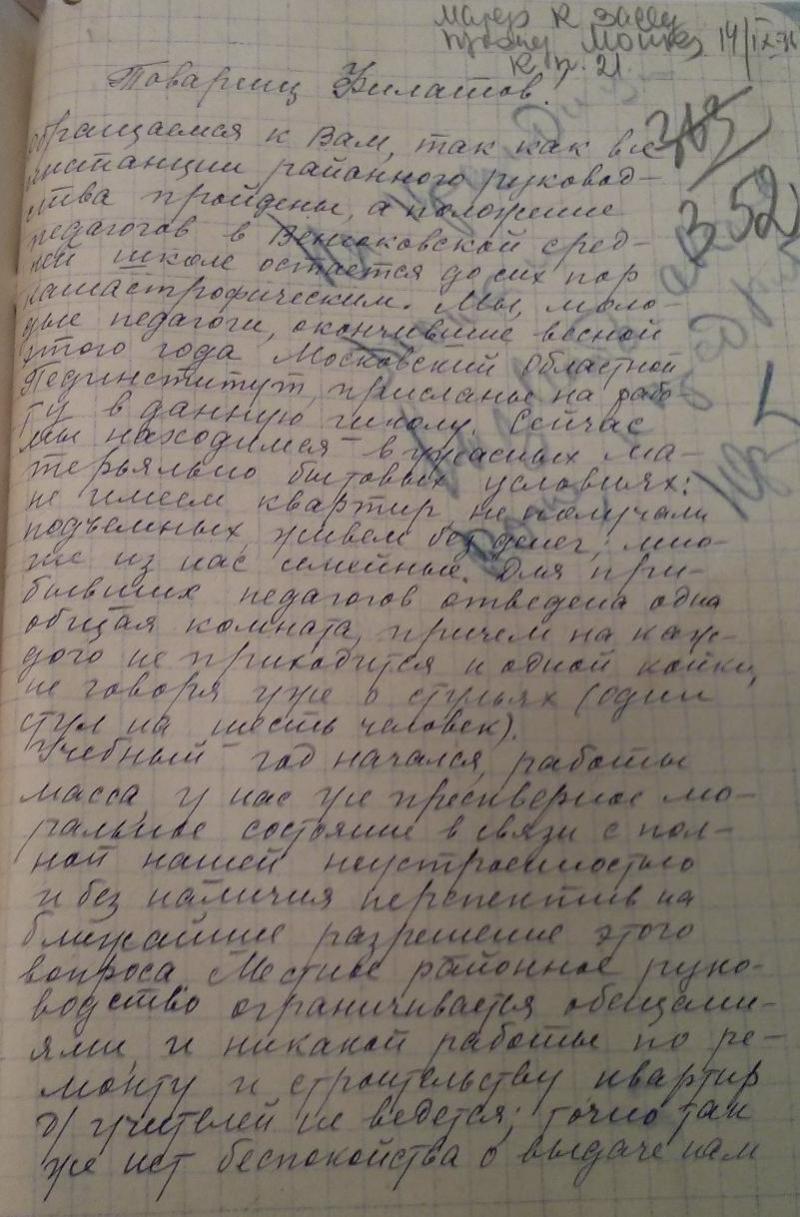 матер к засед
14/IX-36
К пр. 21.
Товарищ Филатов.
обращаемся к Вам, так как все
инстанции районного руковод-
ства пройдены, а положение
педагогов в сред-
ней школе остается до сих пор
катастрофическим. Мы, моло-
дые педагоги, окончившие весной
этого года Московский Областной
Пединститут, присланы на рабо-
ту в данную школу. Сейчас
мы находимся в ужасных ма-
терьяльно бытовых условиях:
не имеем квартир, не получали
подъемных, живем без денег; мно-
гие из нас семейные. Для при-
бывших педагогов отведена одна
общая комната, причем на каж-
дого не приходится и одной койки,
не говоря уже о стульях (один
стул на шесть человек).
Учебный год начался, работы
масса, у нас же прескверное мо-
ральное состояние в связи с пол-
ной нашей неустроенностью
и без наличия перспектив на
ближайшие разрешение этого
вопроса. Местное районное руко-
водство ограничивается обещани-
ями, и никакой работы по ре-
монту и строительству квартир
д/ учителей не ведется; точно так
же нет беспокойства о выдаче нам
352